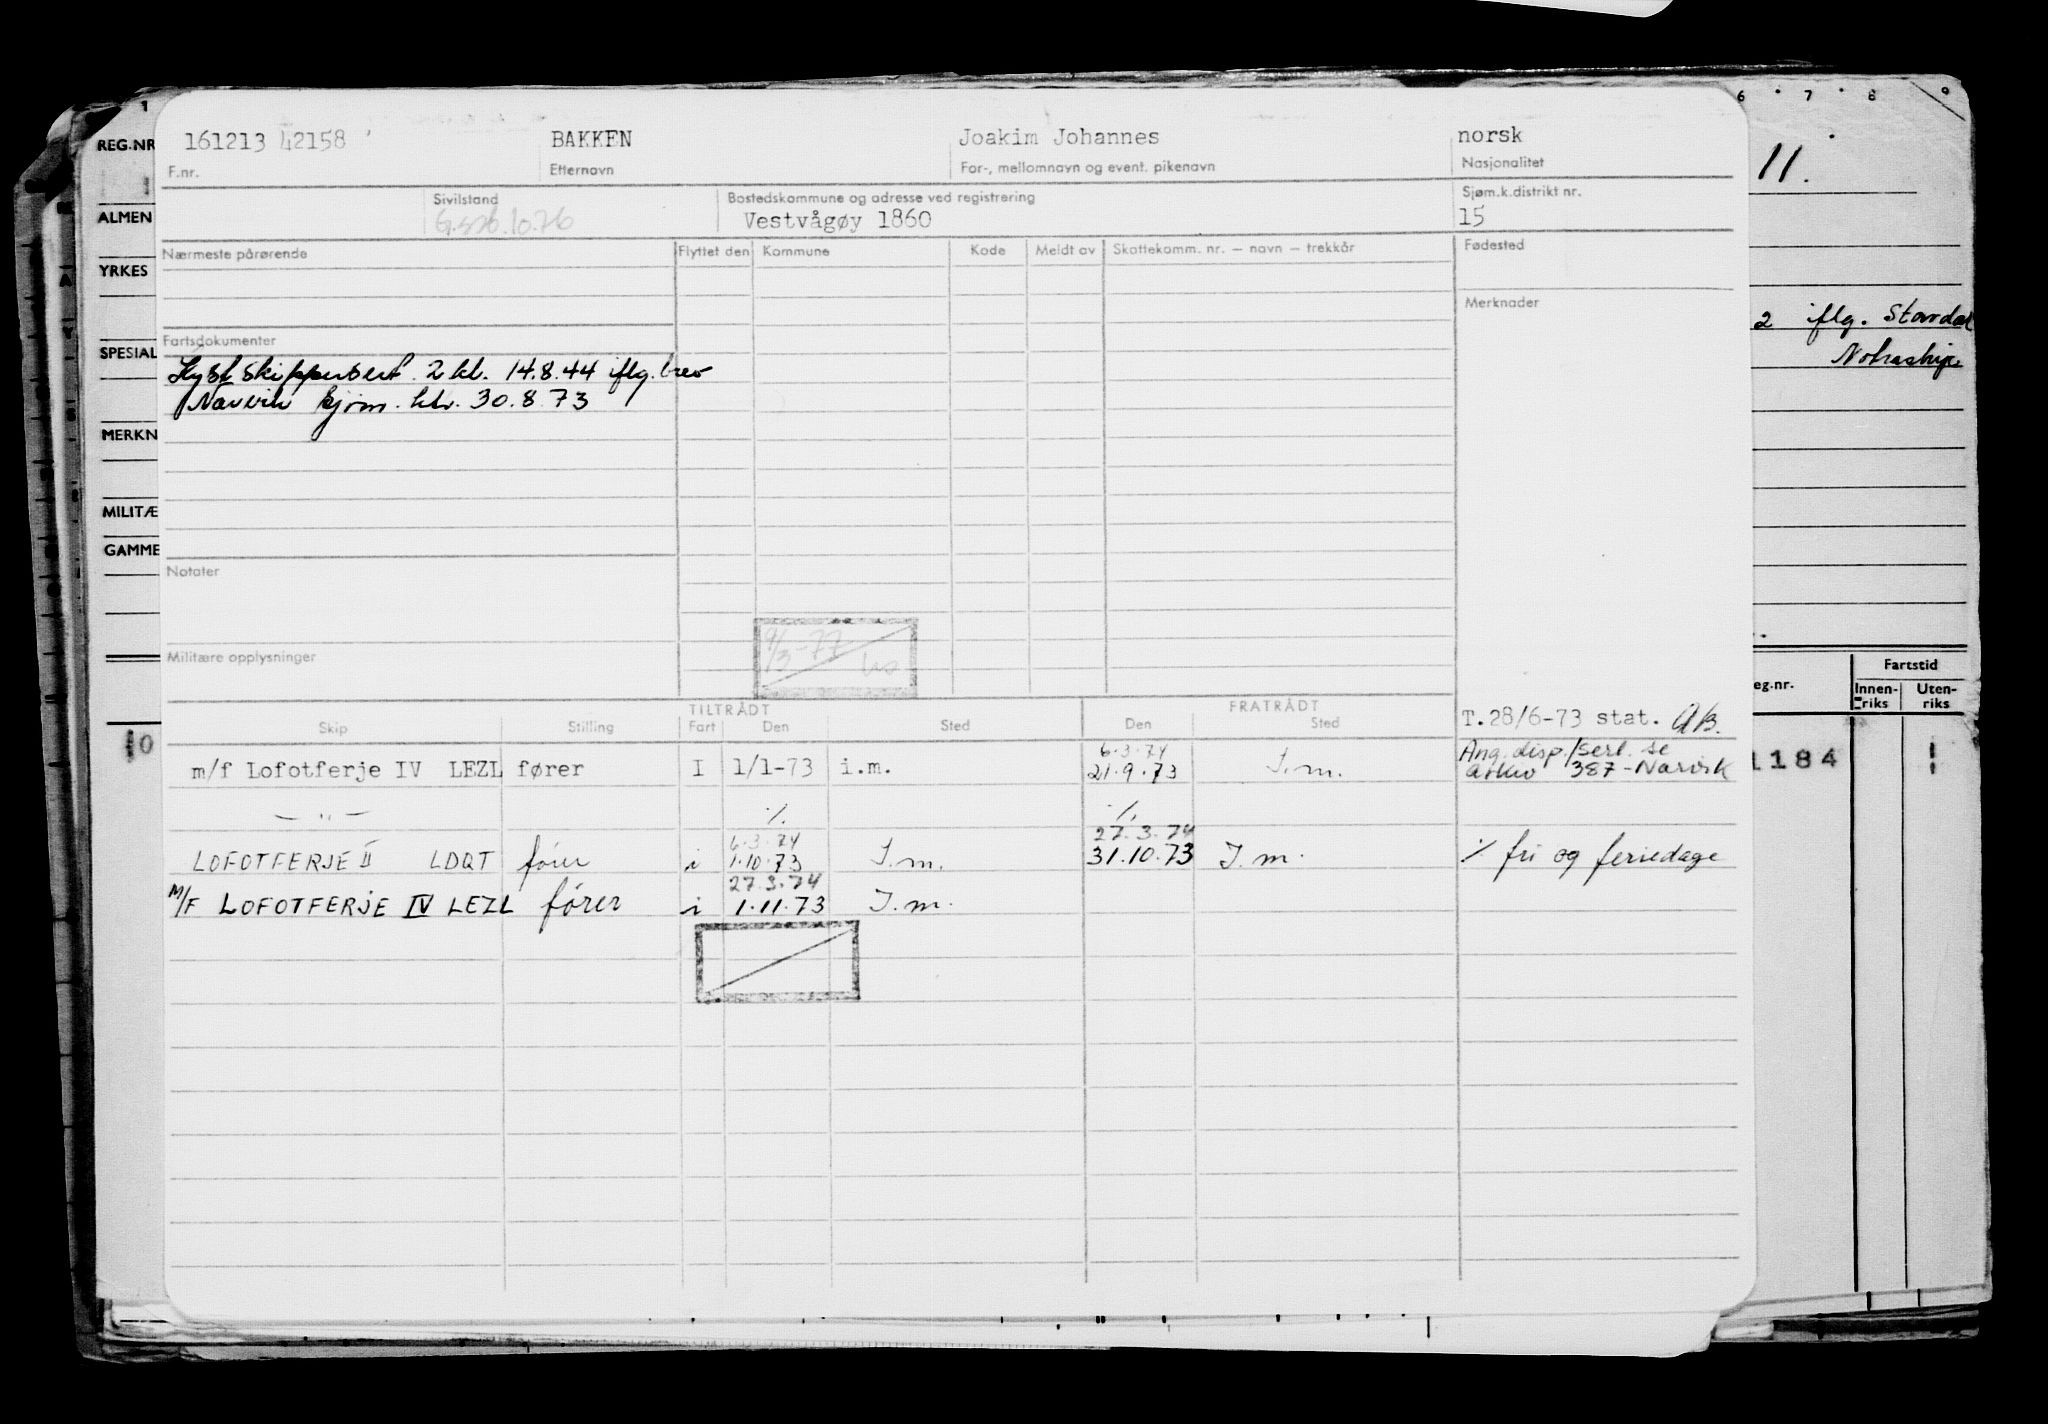 161213 42158 BAKKEN Joakim Johannes norsk
F.nr. Etternavn For-, mellomnavn og event. pikenavn Nasjonalitet
Sivilstand Bostedskommune og adresse ved registrering Sjøm.k.distrikt nr.
Vestvågøy 1860 15
Nærmeste pårørende Flyttet den Kommune Kode Meldt av Skattekomm. nr. — navn — trekkår Fødested
Merknader
Fartsdokumenter
Kystskippersert. 2 kl. 14.8.44 iflg. brev
Narvik sjøm. ktr. 30.8.73
Notater
9/3-77
Militære opplysninger
TILTRÅDT FRATRÅDT
Skip Stilling Fart Den Sted Den Sted
T.28/6-73 stat. AB.
6.3.74 Ang. disp./sert. se
m/f Lofotferje IV LEZL fører I 1/1-73 i.m. 21.9.73 I.m. arkiv 387-Narvik
— " — ·/. ·/.
6.3.74 27.3.74
LOFOTFERJE II LDQT fører i 1.10.73 I.m. 31.10.73 I.m. ·/. fri og feriedage
27.3.74
M/F LOFOTFERJE IV LEZL fører i 1.11.73 I.m.
REG.NR
ALMEN
YRKES
SPESIAL
MERKN
MILITÆ
GAMME
10
6 7 8 9
11.
2 iflg. Stavdal
Notraship
eg.nr. Fartstid
Innen-riks Uten-riks
1184